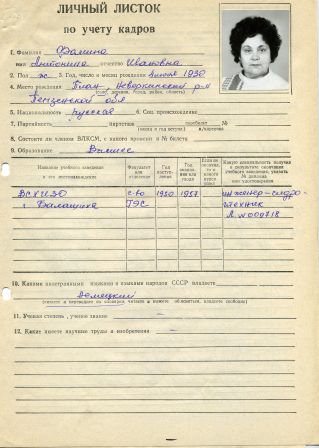 ЛИЧНЫЙ ЛИСТОК
по учету кадров
1. Фамилия Фалина
имя Антонина отчество Ивановна
2. Пол ж 3. Год, число и месяц рождения 1930
4. Место рождения Неверкинский р-н
(село, деревня, город, район, область)
Пензенской обл
5. Национальность русская 6. Соц. происхождение
7. Партийность партстаж партбилет №
8. Состоите ли членом ВЛКСМ, с какого времени и № билета
9. Образование Высшее
Название учебного заведения и его местонахождение
Факультет или отделение
Год поступления
Год окончания или ухода
Если не окончил, то с какого курса ушел
Какую специальность получил в результате окончания учебного заведения, указать № диплома или удостоверения
ВСХИЗО с-во 1950 1957 инженер-гидро-
г. Балашиха ГЭС техник
Л №009718
10. Какими иностранными языками и языками народов СССР владеете
Немецкий
(читаете и переводите со словарем, читаете и можете объясняться, владеете свободно)
11. Ученая степень, ученое звание –
12. Какие имеете научные труды и изобретения –